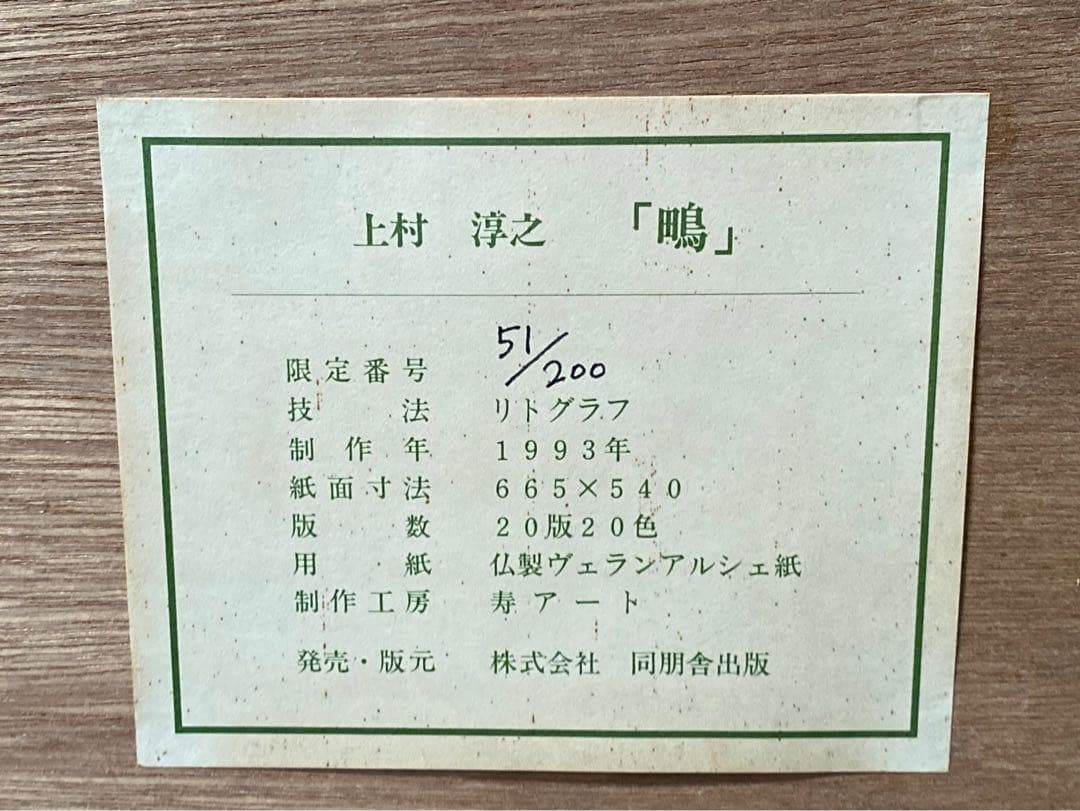 上村 淳之 「鴫」
限定番号 51/200
技法 リトグラフ
制作年 1993年
紙面寸法 665×540
版数 20版20色
用紙 仏製ヴェランアルシェ紙
制作工房 寿アート
発売・版元 株式会社 同朋舎出版